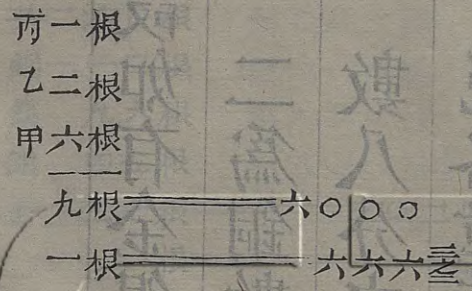 丙一根
乙二根
甲六根
九根══六〇〇〇
一根══六六六三之二